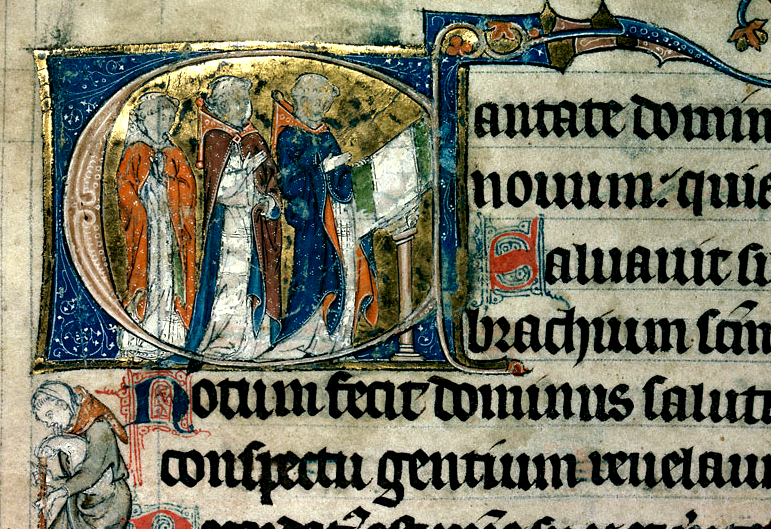 Cantate domin
nouum: quia
Saluauit si
brachium scm
Notum fecit dominus salut
conspectu gentium reuelau